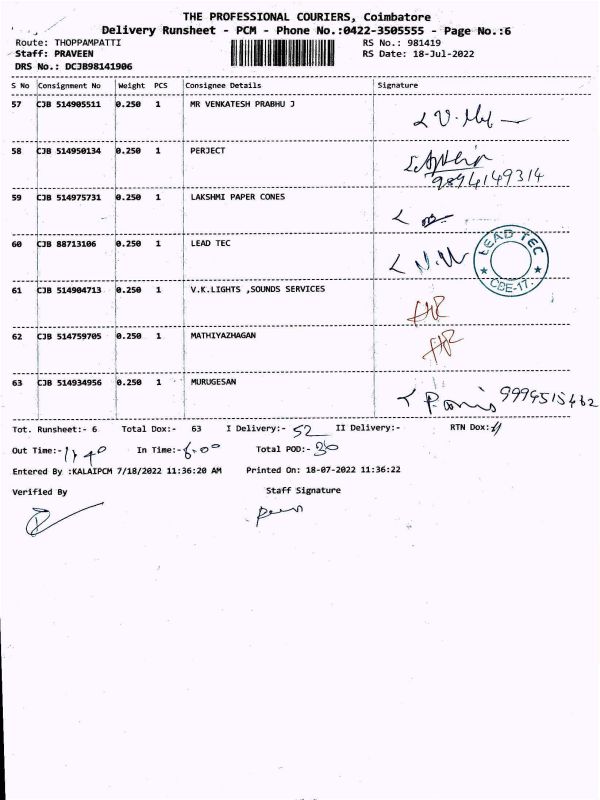 THE PROFESSIONAL COURIERS, Coimbatore
Delivery Runsheet - PCM - Phone No.:0422-3505555 - Page No.:6
Route: THOPPAMPATTI RS No.: 981419
Staff: PRAVEEN RS Date: 18-Jul-2022
DRS No.: DCJB98141906
S No Consignment No Weight PCS Consignee Details Signature
57 CJB 514905511 0.250 1 MR VENKATESH PRABHU J
58 CJB 514950134 0.250 1 PERJECT
9894149314
59 CJB 514975731 0.250 1 LAKSHMI PAPER CONES
60 CJB 88713106 0.250 1 LEAD TEC
LEAD TEC
CBE-17.
61 CJB 514904713 0.250 1 V.K.LIGHTS ,SOUNDS SERVICES
62 CJB 514759705 0.250 1 MATHIYAZHAGAN
63 CJB 514934956 0.250 1 MURUGESAN
Tot. Runsheet:- 6 Total Dox:- 63 I Delivery:- 52 II Delivery:- RTN Dox:- 11
Out Time:- 11 40 In Time:- 6.00 Total POD:- 36
Entered By :KALAIPCM 7/18/2022 11:36:20 AM Printed On: 18-07-2022 11:36:22
Verified By Staff Signature